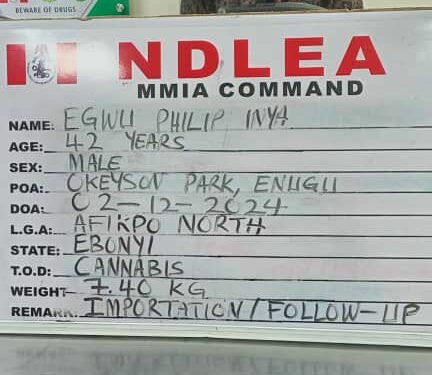 BEWARE OF DRUGS
NDLEA
MMIA COMMAND
NAME: EGWU PHILIP INYA
AGE: 42 YEARS
SEX: MALE
POA: OKEYSON PARK, ENUGU
DOA: 02-12-2024
L.G.A: AFIKPO NORTH
STATE: EBONYI
T.O.D: CANNABIS
WEIGHT 7.40 KG
REMARK: IMPORTATION/FOLLOW-UP